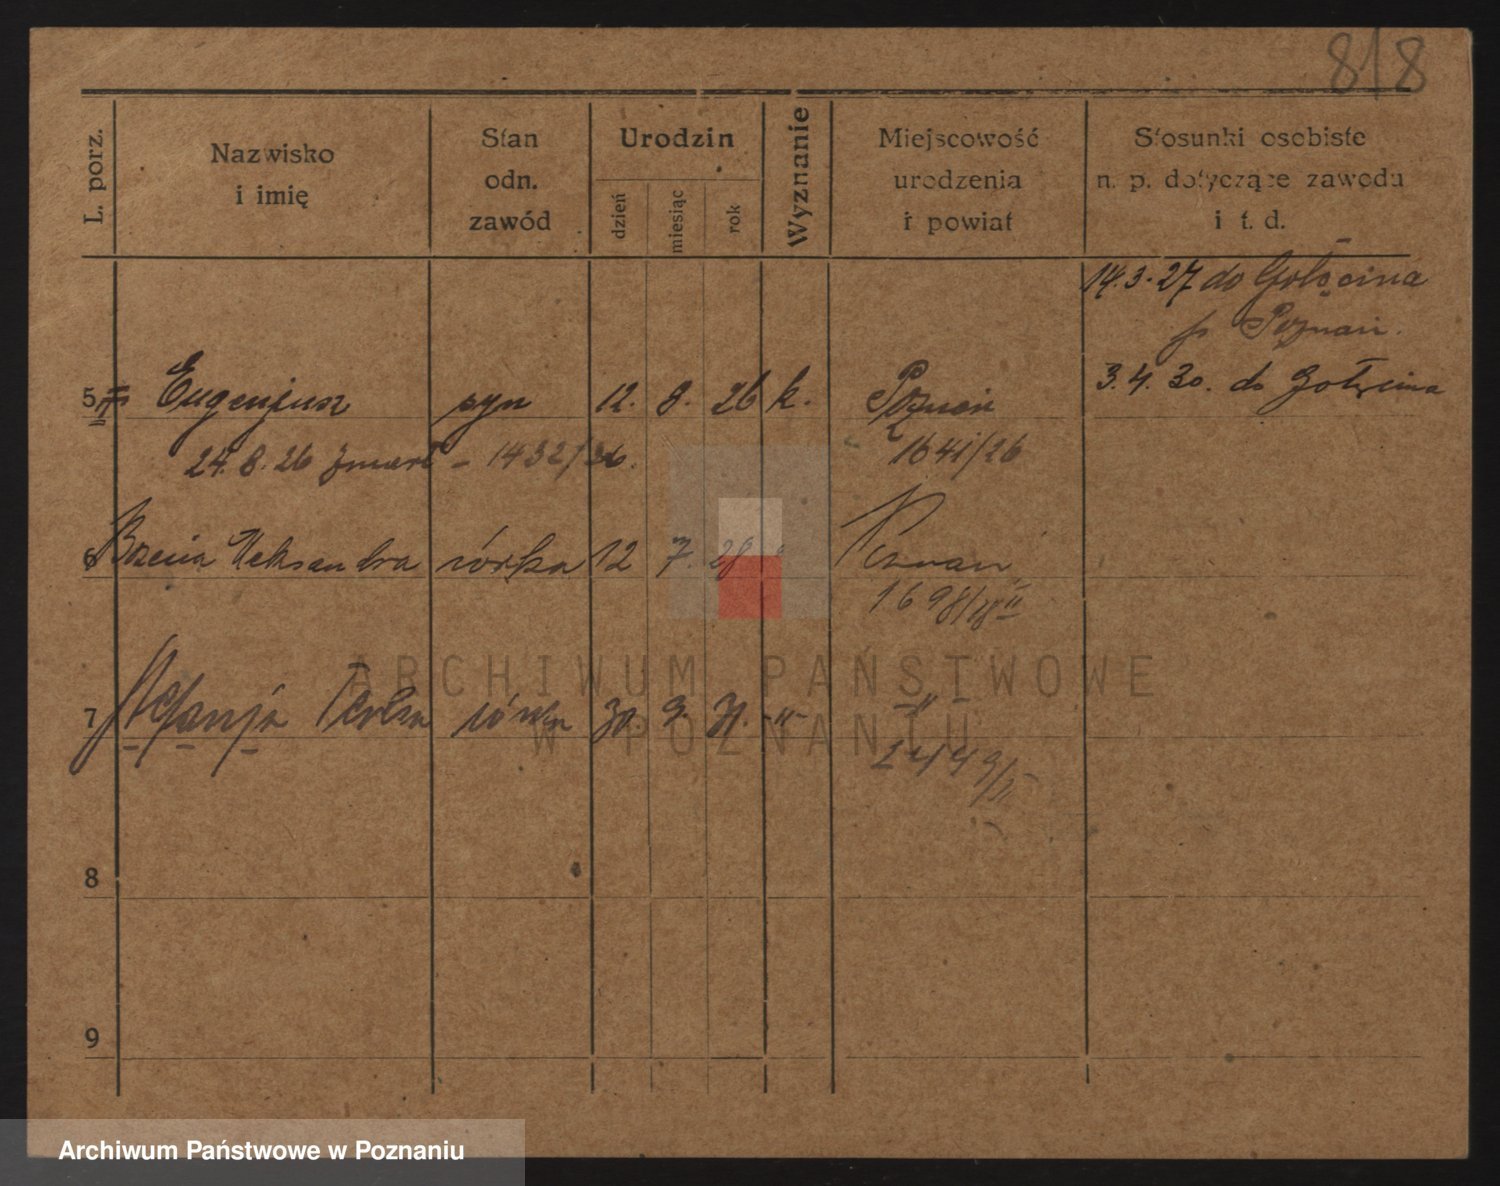 818
L. porz.
Nazwisko
i imię
Stan
odn.
zawód
Urodzin
dzień
miesiąc
rok
Wyznanie
Miejscowość
urodzenia
i powiat
Stosunki osobiste
n. p. dotyczące zawodu
i t. d.
14.3.27 do Golęcina
p. Poznań.
3.4.30. do Golęcina
5 Eugenjusz syn 12. 8. 26 k. Poznań
24.8.26 zmarł - 1432/26. 1641/26
6 Aleksandra córka 12 7. 28 Poznań
1698/28 II
7 Stefanja córka 30. 9. 31. -"- -"-
8
9
ARCHIWUM PAŃSTWOWE
W POZNANIU
Archiwum Państwowe w Poznaniu